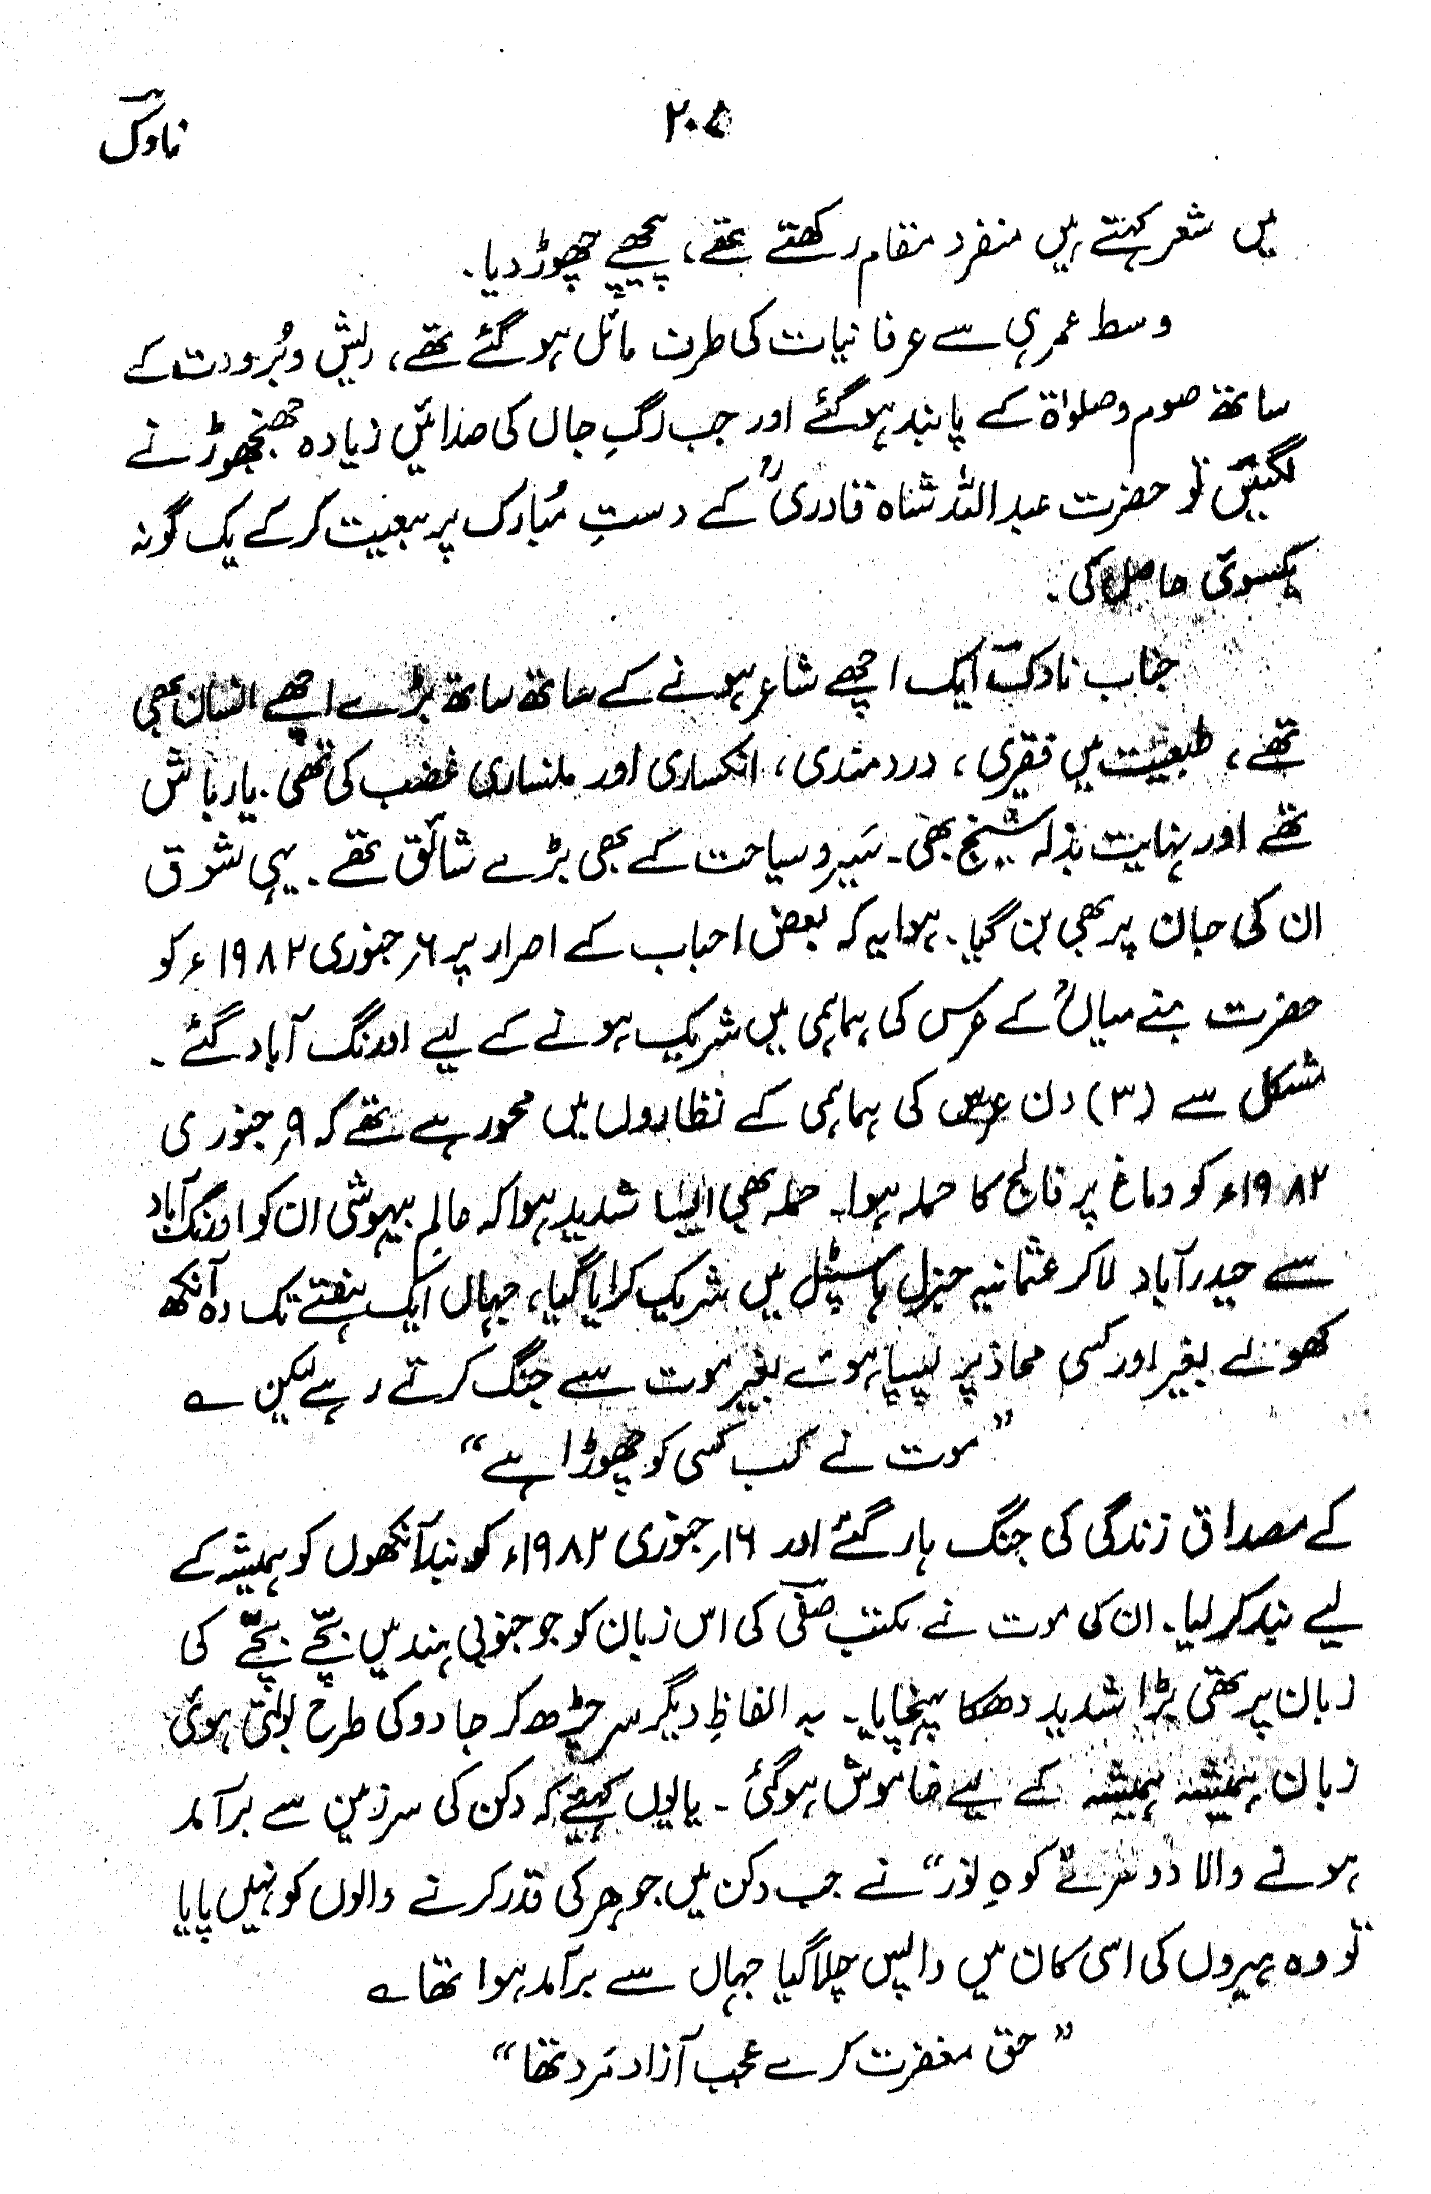 ۲۰۵
ناوکؔ
میں شعر کہنے میں منفرد مقام رکھتے تھے، پیچھے چھوڑ دیا۔
وسط عمری سے عرفانیات کی طرف مائل ہو گئے تھے، ریش و بُرودت کے
ساتھ صوم و صلوٰۃ کے پابند ہو گئے اور جب رگِ جاں کی صدائیں زیادہ جھنجھوڑنے
لگیں تو حضرت عبداللہ شاہ قادریؒ کے دستِ مُبارک پر بیعت کر کے یک گونہ
یکسوئی حاصل کی۔
جناب ناوکؔ ایک اچھے شاعر ہونے کے ساتھ ساتھ بڑے اچھے انسان بھی
تھے، طبعیت میں فقیری، دردمندی، انکساری اور ملنساری غضب کی تھی۔ یار باش
تھے اور نہایت بذلہ سنج بھی۔ سَیر و سیاحت کے بھی بڑے شائق تھے۔ یہی شوق
ان کی جان پر بھی بن گیا۔ ہوا یہ کہ بعض احباب کے اصرار پر ۶؍ جنوری ۱۹۸۲ء کو
حضرت بنے میاںؒ کے عرس کی ہماہمی میں شریک ہونے کے لیے اورنگ آباد گئے۔
مشکل سے (۳) دن عرس کی ہماہمی کے نظاروں میں محو رہے تھے کہ ۹؍ جنوری
۱۹۸۲ء کو دماغ پر فالج کا حملہ ہوا۔ حملہ بھی ایسا شدید ہوا کہ عالمِ بیہوشی ان کو اورنگ آباد
سے حیدرآباد لا کر عثمانیہ جنرل ہاسپٹل میں شریک کرایا گیا، جہاں ایک ہفتے تک وہ آنکھ
کھولے بغیر اور کسی محاذ پر پسپا ہوئے بغیر موت سے جنگ کرتے رہے لیکن ؎
”موت نے کب کسی کو چھوڑا ہے“
کے مصداق زندگی کی جنگ ہار گئے اور ۱۶؍ جنوری ۱۹۸۲ء کو بند آنکھوں کو ہمیشہ کے
لیے بند کر لیا۔ ان کی موت نے مکتبِ صفیؔ کی اس زبان کو جو جنوبی ہند میں بچّے بچّے کی
زبان پر تھی بڑا شدید دھکا پہنچایا۔ بہ الفاظِ دیگر سر چڑھ کر جادو کی طرح بولتی ہوئی
زبان ہمیشہ ہمیشہ کے لیے خاموش ہو گئی۔ یا یوں کہیے کہ دکن کی سرزمین سے برآمد
ہونے والا دوسرے کوہِ نور“ نے جب دکن میں جوہر کی قدر کرنے والوں کو نہیں پایا
تو وہ ہیروں کی اسی کان میں واپس چلا گیا جہاں سے برآمد ہوا تھا ؎
”حق مغفرت کرے عجب آزاد مَرد تھا“